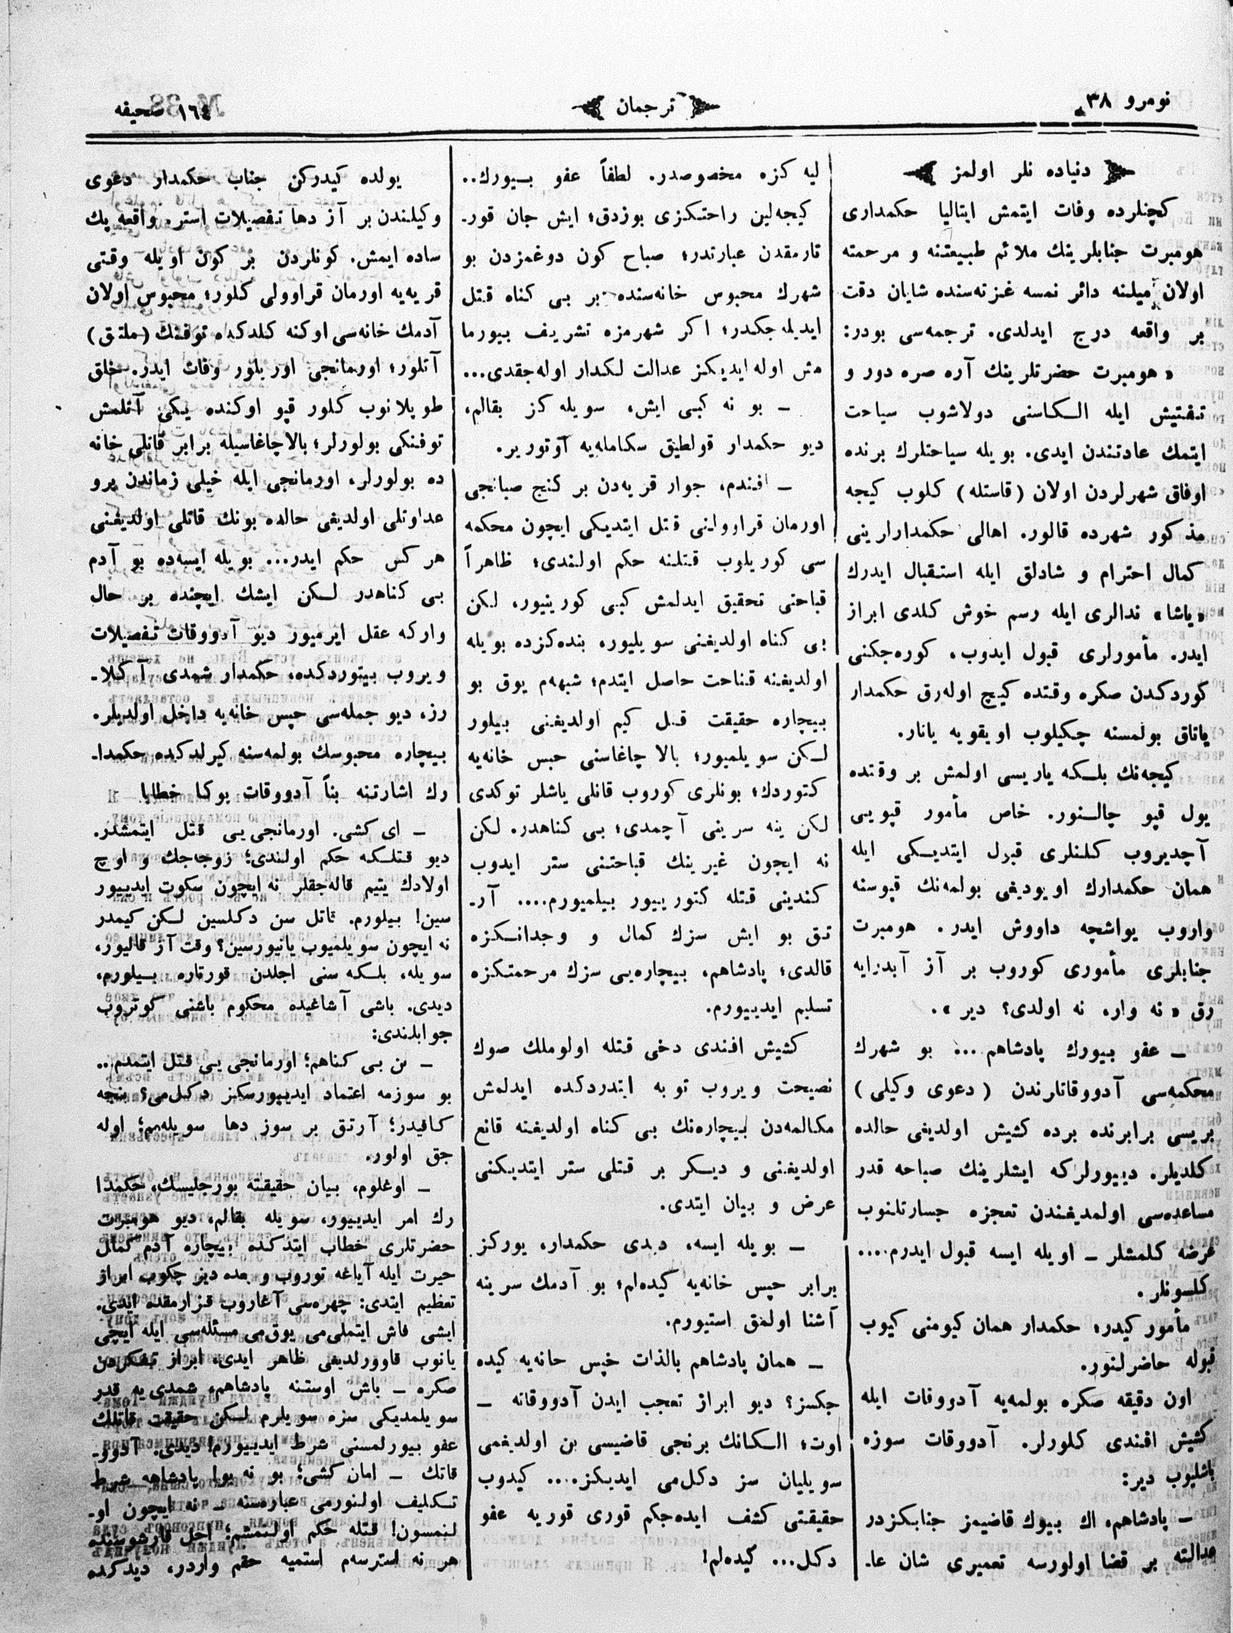 نومرو ٣٨
ترجمان
١٦٤ صحيفه
دنياده نلر اولمز
كچنلرده وفات ايتمش ايتاليا حكمدارى
هومبرت جنابلرينك ملائم طبيعتنه و مرحمته
اولان ميلنه دائر نمسه غزته‌سنده شايان دقت
بر واقعه درج ايدلدى. ترجمه‌سى بودر:
« هومبرت حضرتلرينك آره صره دور و
تفتيش ايله الكاسنى دولاشوب سياحت
ايتمك عادتندن ايدى. بويله سياحتلرك برنده
اوفاق شهرلردن اولان (قاستله) كلوب كيجه
مذكور شهرده قالور. اهالى حكمدارارينى
كمال احترام و شادلق ايله استقبال ايدرك
«ياشا» ندالرى ايله رسم خوش كلدى ابراز
ايدر. مأمورلرى قبول ايدوب، كوره‌جكنى
كوردكدن صكره وقتده كيچ اوله‌رق حكمدار
ياتاق بولمسنه چكيلوب اويقويه يانار.
كيجه‌نك بلكه ياريسى اولمش بر وقتده
يول قپو چالنور. خاص مأمور قپويى
آچديروب كلنلرى قبول ايتديكى ايله
همان حكمدارك اويوديغى بولمه‌نك قپوسنه
واروب يواشجه داووش ايدر. هومبرت
جنابلرى مأمورى كوروب بر آز آيدرايه
رق « نه وار، نه اولدى؟ دير ».
ـ عفو بيورك پادشاهم ... بو شهرك
محكمه‌سى آدووقاتلرندن ( دعوى وكيلى )
بريسى برابرنده برده كشيش اولديغى حالده
كلديلر. دييورلركه ايشلرينك صباحه قدر
مساعده‌سى اولمديغندن تعجزه جسارتلنوب
عرضه كلمشلر ـ اويله ايسه قبول ايدرم....
كلسونلر.
مأمور كيدر؛ حكمدار همان كيومنى كيوب
قبوله حاضرلنور.
اون دقيقه صكره بولمه‌يه آدووقات ايله
كشيش افندى كلورلر. آدووقات سوزه
باشليوب دير:
ـ پادشاهم، اك بيوك قاضيمز جنابكزدر
عدالته بر قضا اولورسه تعميرى شان عا-
ليه كزه مخصوصدر. لطفاً عفو بيورك..
كيجه‌لين راحتكزى بوزدق؛ ايش جان قور-
تارمقدن عبارتدر؛ صباح كون دوغمزدن بو
شهرك محبوس خانه‌سنده بر بى كناه قتل
ايديله جكدر؛ اكر شهرمزه تشريف بيورما
مش اوله ايديكز عدالت لكدار اوله‌جقدى...
ـ بو نه كبى ايش، سويله كز بقالم،
ديو حكمدار قولطيق سكامله‌يه آوتورير.
ـ افندم، جوار قريه‌دن بر كنج صبانجى
اورمان قراوولنى قتل ايتديكى ايچون محكمه
سى كوريلوب قتلنه حكم اولندى؛ ظاهراً
قباحتى تحقيق ايدلمش كبى كورينيور، لكن
بى كناه اولديغنى سويليور، بنده‌كزده بويله
اولديغنه قناحت حاصل ايتدم؛ شبهه‌م يوق بو
بيچاره حقيقت قتل كيم اولديغنى بيلور
لكن سويلميور؛ بالا چاغاسنى حبس خانه‌يه
كتوردك؛ بونلرى كوروب قانلى ياشلر توكدى
لكن ينه سرينى آچمدى؛ بى كناهدر. لكن
نه ايچون غيرينك قباحتنى ستر ايدوب
كندينى قتله كتورييور بيلميورم.... آر-
تق بو ايش سزك كمال و وجدانكزه
قالدى؛ پادشاهم، بيچاره‌يى سزك مرحمتكزه
تسليم ايدييورم.
كشيش افندى دخى قتله اولوملك صوك
نصيحت ويروب توبه ايتدردكده ايدلمش
مكالمه‌دن بيچاره‌نك بى كناه اولديغنه قانع
اولديغنى و ديكر بر قتلى ستر ايتديكنى
عرض و بيان ايتدى.
ـ بويله ايسه، ديدى حكمدار، يوركز
برابر حپس خانه‌يه كيده‌لم؛ بو آدمك سرينه
آشنا اولمق استيورم.
ـ همان پادشاهم بالذات خپس حانه‌يه كيده
جكسز؟ ديو ابراز تعجب ايدن آدووقاته ـ
اوت؛ الكانك برنجى قاضيسى بن اولديغمى
سويليان سز دكل‌مى ايديكز.... كيدوب
حقيقتى كشف ايده‌جكم قورى قوريه عفو
دكل... كيده‌لم!
يولده كيدركن جناب حكمدار دعوى
وكيلندن بر آز دها تفصيلات استر. واقعه پك
ساده ايمش. كونلردن بر كون اويله وقتى
قريه‌يه اورمان قراوولى كلور؛ محبوس اولان
آدمك خانه‌سى اوكنه كلدكده توفنك (ملتق)
آتلور؛ اورمانجى اوريلور وفات ايدر. خلق
طوپلانوب كلور قپو اوكنده يكى آتلمش
توفنكى بولورلر؛ بالاچاغاسيله برابر قاتلى خانه
ده بولورلر، اورمانجى ايله خيلى زماندن برو
عداوتلى اولديغى حالده بونك قاتلى اولديغنى
هر كس حكم ايدر... بويله ايسه‌ده بو آدم
بى كناهدر لكن ايشك ايچنده بر حال
واركه عقل ايرميور ديو آدووقات تفصيلات
ويروب بيتوردكده، حكمدار شمدى آكلا-
رز، ديو جمله‌سى حپس خانه‌يه داخل اولديلر.
بيچاره محبوسك بولمه‌سنه كيرلدكده حكمدا-
رك اشارتنه بناً آدووقات بوكا خطابا
ـ اى كشى. اورمانجى‌يى قتل ايتمشدر.
ديو قتلكه حكم اولندى؛ زوجه‌جك و اوچ
اولادك يتيم قاله‌جقلر نه ايچون سكوت ايدييور
سين! بيلورم. قاتل سن دكلسين لكن كيمدر
نه ايچون سويلميوب ياتيورسين؟ وقت آز قاليور،
سويله، بلكه سنى اجلدن قورتاره بيلورم،
ديدى. باشى آشاغيده محكوم باشنى كوتروب
جوابلندى:
ـ بن بى كناهم؛ اورمانجى‌يى قتل ايتمدم..
بو سوزمه اعتماد ايدييورسكز دكل‌مى؟ بنچه
كافيدر؛ آرتق بر سوز دها سويله‌مم؛ اوله
جق اولور.
ـ اوغلوم، بيان حقيقته بورجليسك، حكمدا
رك امر ايدييور، سويله بقالم، ديو هومبرت
حضرتلرى خطاب ايتدكده بيچاره آدم كمال
حيرت ايله آياغه توروب و بعده ديز چكوب ابراز
تعظيم ايتدى: چهره‌سى آغاروب قزارمقده ايدى.
ايشى فاش ايتملى‌مى يوق‌مى مسئله‌سى ايله ايچى
يانوب قاوورلديغى ظاهر ايدى، ابراز تشكردن
صكره ـ باش اوستنه پادشاهم، شمدى يه قدر
سويلمديكى سزه سويلرم لكن حقيقت قاتلك
عفو بيورلمسنى شرط ايدييورم! ديدى. آدوو-
قاتك ـ امان كشى؛ بو نه بو! پادشاهه شرط
تكليف اولنورمى عباره‌سنه ـ نه ايچون او-
لنمسون! قتله حكم اولنمشم؛ اجل قارشوسنده
هر نه استرسه‌م استميه حقم واردر، ديدكده